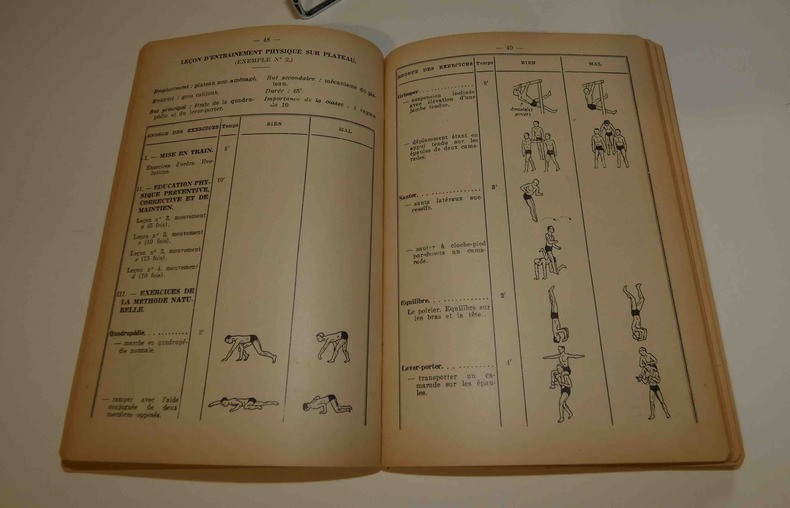 — 48 —
LEÇON D'ENTRAINEMENT PHYSIQUE SUR PLATEAU.
(EXEMPLE N° 2.)
Emplacement : plateau non aménagé.
Matériel : gros cailloux.
But principal : étude de la quadru-
pédie et du lever-porter.
But secondaire : mécanisme du pla-
teau.
Durée : 45'
Importance de la classe : 1 vague
de 10.
ENONCE DES EXERCICES
Temps
BIEN
MAL
I. — MISE EN TRAIN.
5'
Exercices d'ordre. Evo-
lutions.
II. — EDUCATION PHY-
SIQUE PREVENTIVE,
CORRECTIVE ET DE
MAINTIEN.
10'
Leçon n° 2, mouvement
(5 fois).
Leçon n° 3, mouvement
(10 fois).
Leçon n° 3, mouvement
(15 fois).
Leçon n° 4, mouvement
d (10 fois).
III. — EXERCICES DE
LA METHODE NATU-
RELLE.
Quadrupédie. . . . . . . . . . .
2'
— marche en quadrupé-
die normale.
— ramper avec l'aide
conjuguée de deux
membres opposés.
— 49 —
ENONCE DES EXERCICES
Temps
BIEN
MAL
Grimper. . . . . . . . . . . . .
5'
— suspension inclinée
avec élévation d'une
jambe tendue.
— déplacement étant en
appui tendu sur les
épaules de deux cama-
rades.
Sauter. . . . . . . . . . . . . .
3'
— sauts latéraux suc-
cessifs.
— sauter à cloche-pied
par-dessus un cama-
rade.
Equilibre. . . . . . . . . . . . .
2'
Le poirier. Equilibre sur
les bras et la tête.
Lever-porter. . . . . . . . . . .
4'
— transporter un ca-
marade sur les épau-
les.